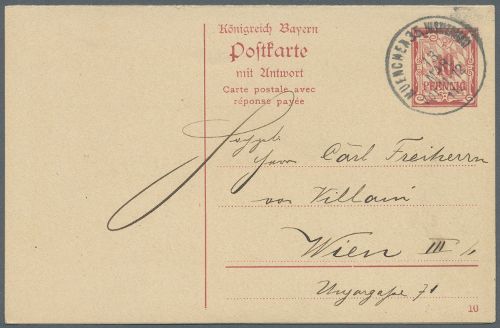 Königreich Bayern
Postkarte
mit Antwort
Carte postale avec
réponse payée
MUENCHEN 35
10
PFENNIG
Herrn Carl Freiherrn
von Villani
Wien III
Ungargasse 71
10